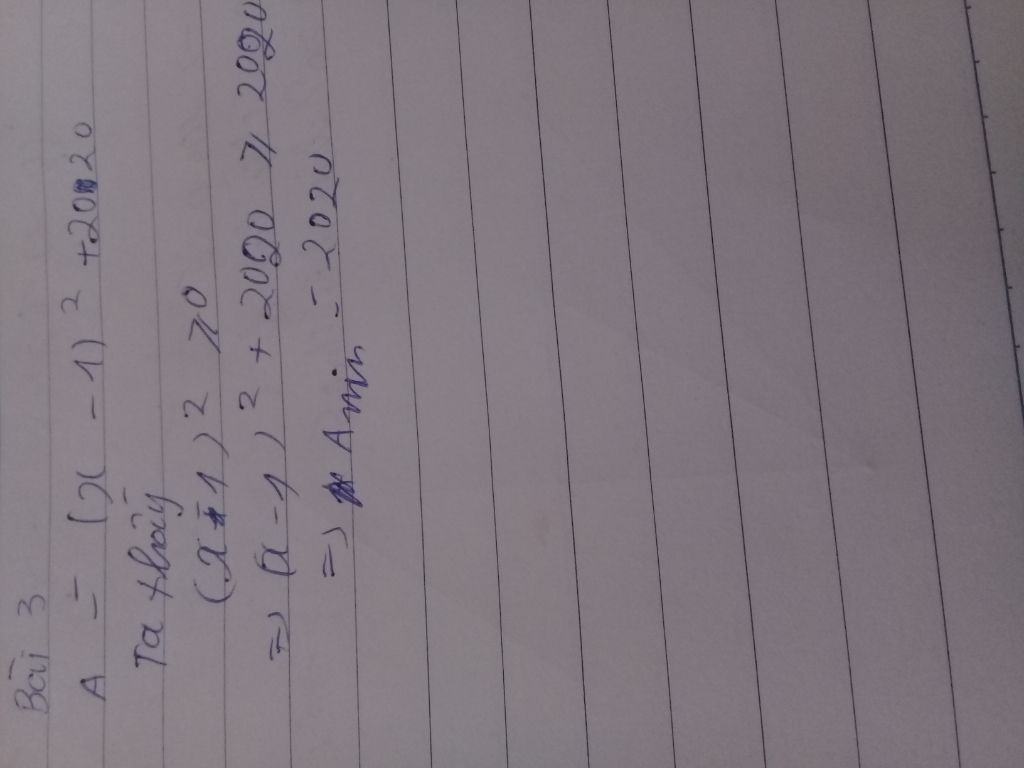 Bài 3
A = (x - 1)² + 2020
Ta thấy
(x - 1)² ≥ 0
=> (x - 1)² + 2020 ≥ 2020
=> A min = 2020